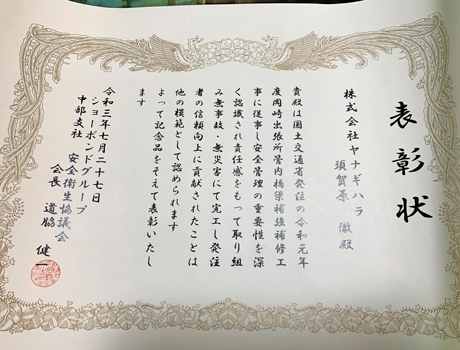 表彰状
株式会社ヤナギハラ
須賀原 徹殿
貴殿は国土交通省発注の令和元年
度岡崎出張所管内橋梁補強補修工
事に従事し安全管理の重要性を深
く認識され責任感をもって取り組
み無事故・無災害にて完工し発注
者の信頼向上に貢献されたことは
他の模範として認められます
よって記念品をそえて表彰いたし
ます
令和三年七月二十七日
ショーボンドグループ
中部支社
安全衛生協議会
会長 道脇 健一